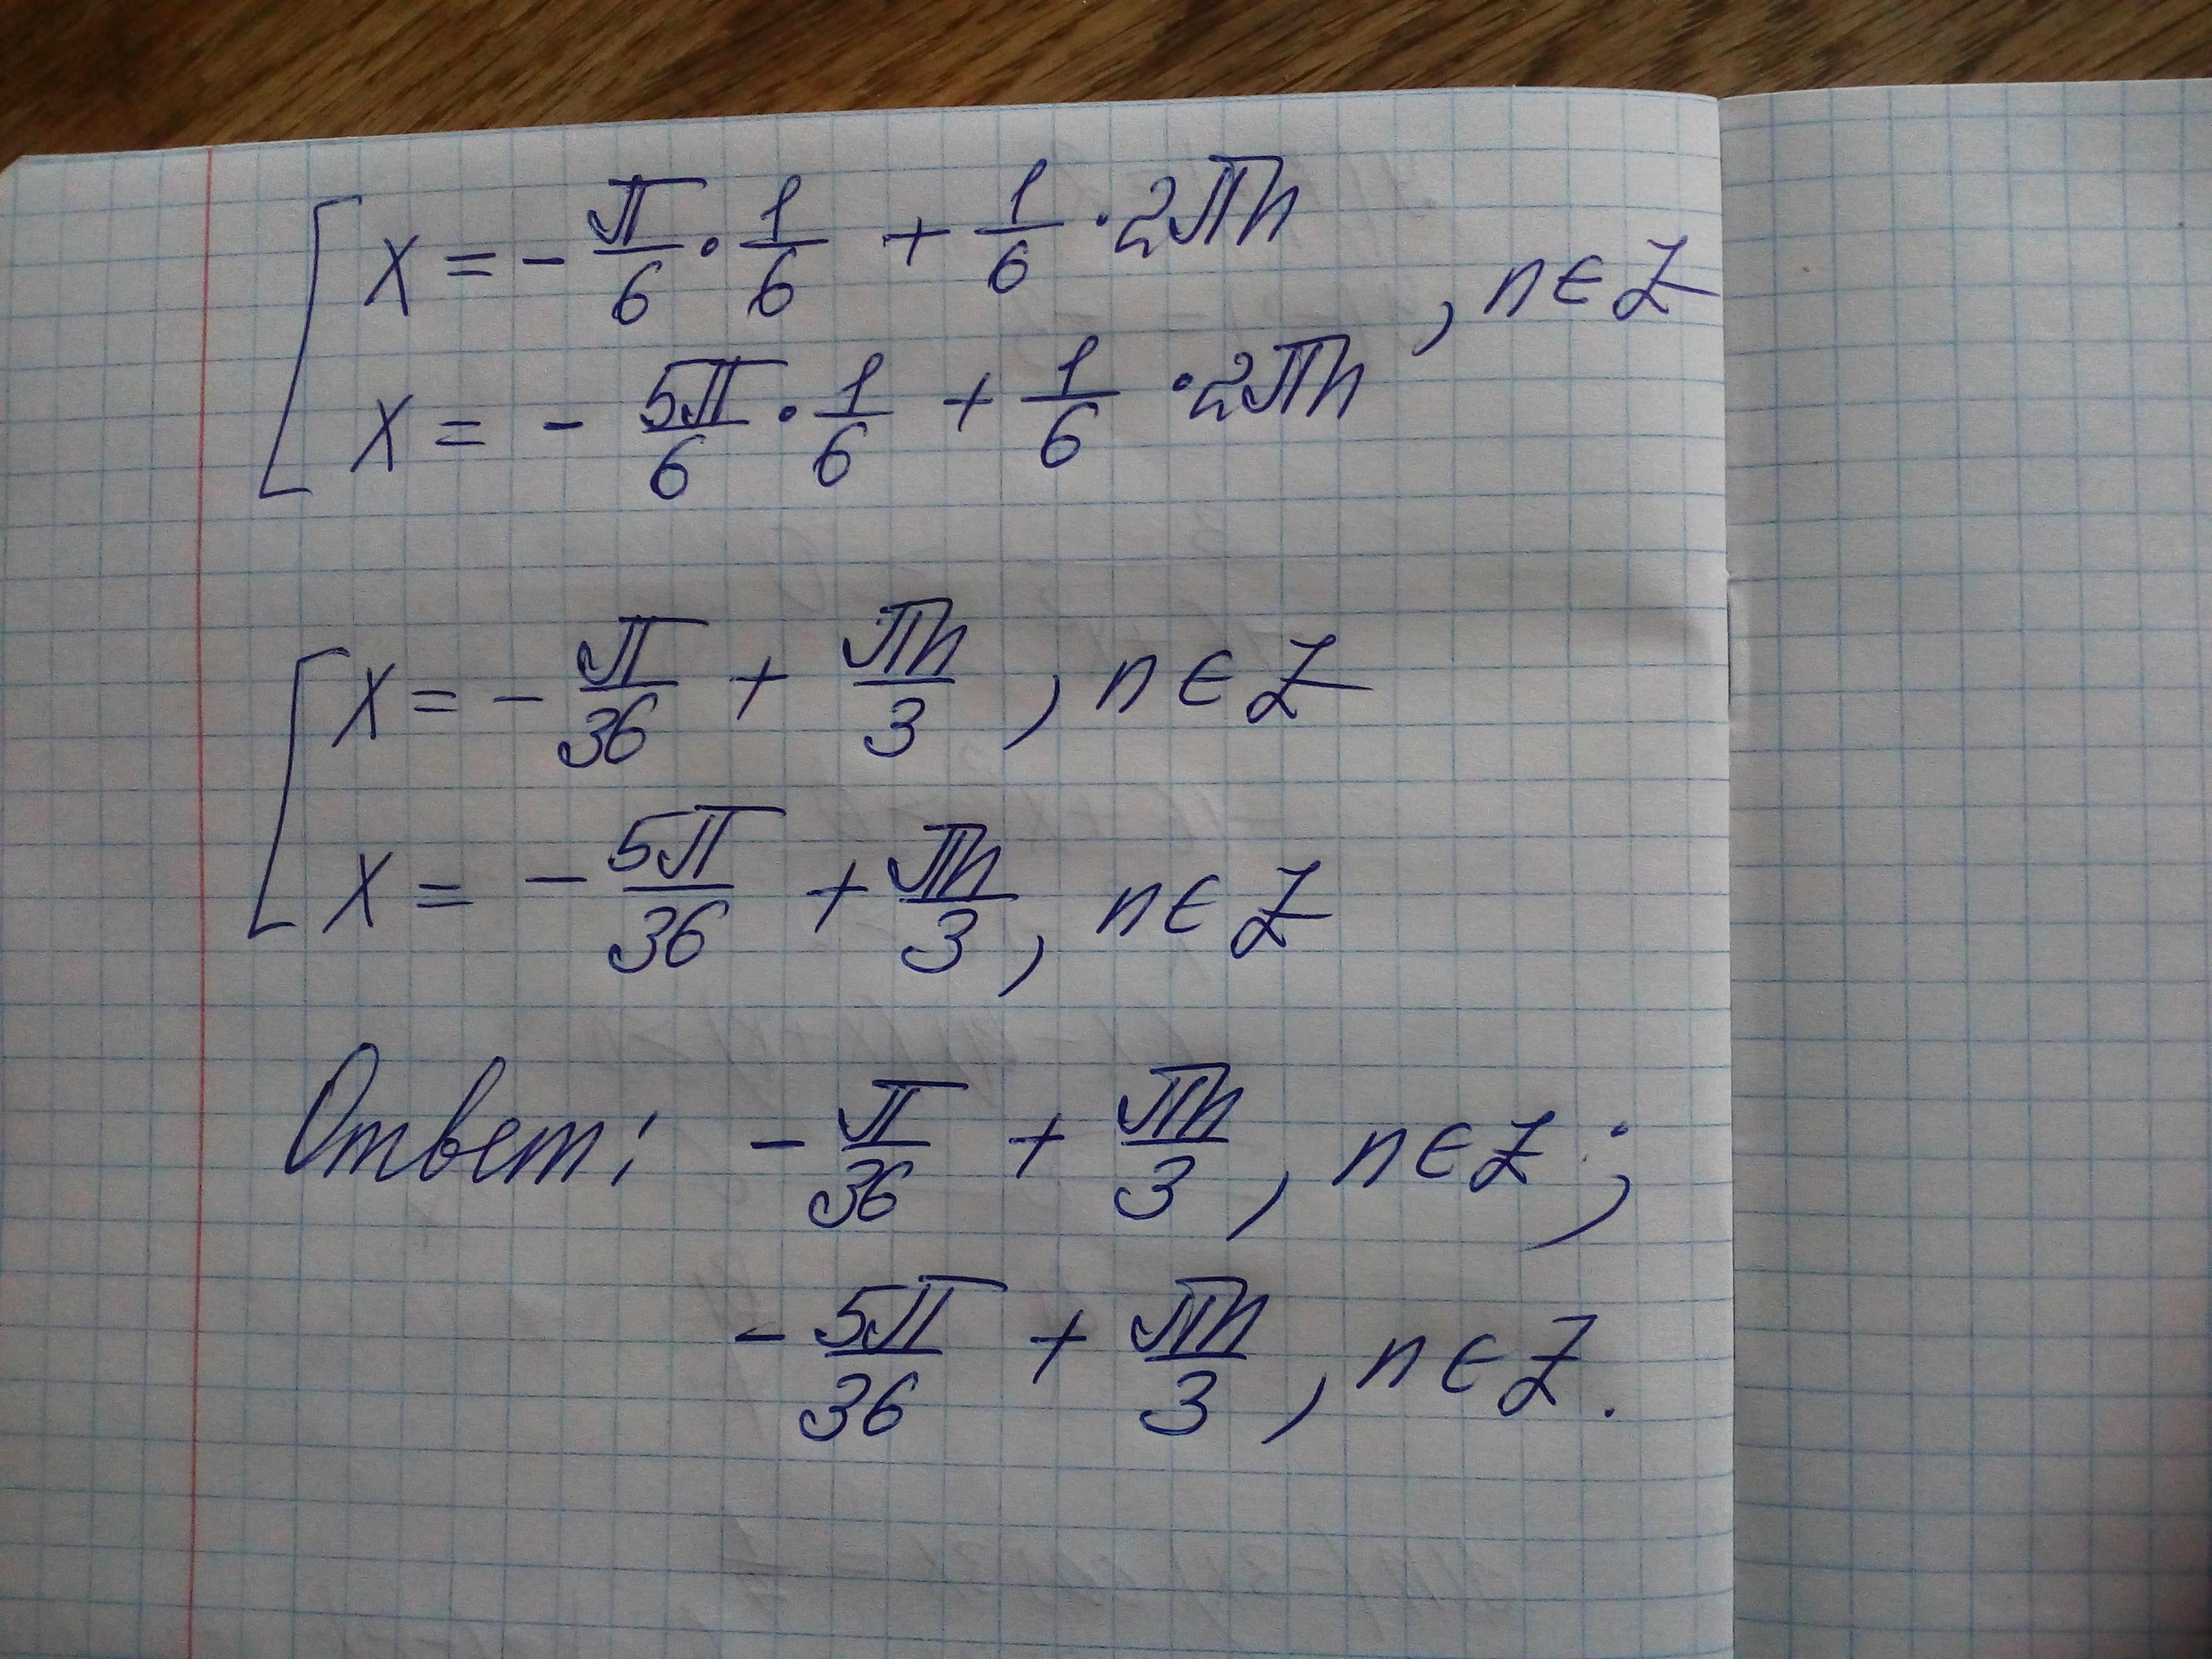 [ x = - π/6 · 1/6 + 1/6 · 2πn
x = - 5π/6 · 1/6 + 1/6 · 2πn , n ∈ Z
[ x = - π/36 + πn/3 , n ∈ Z
x = - 5π/36 + πn/3 , n ∈ Z
Ответ: - π/36 + πn/3 , n ∈ Z ;
- 5π/36 + πn/3 , n ∈ Z .